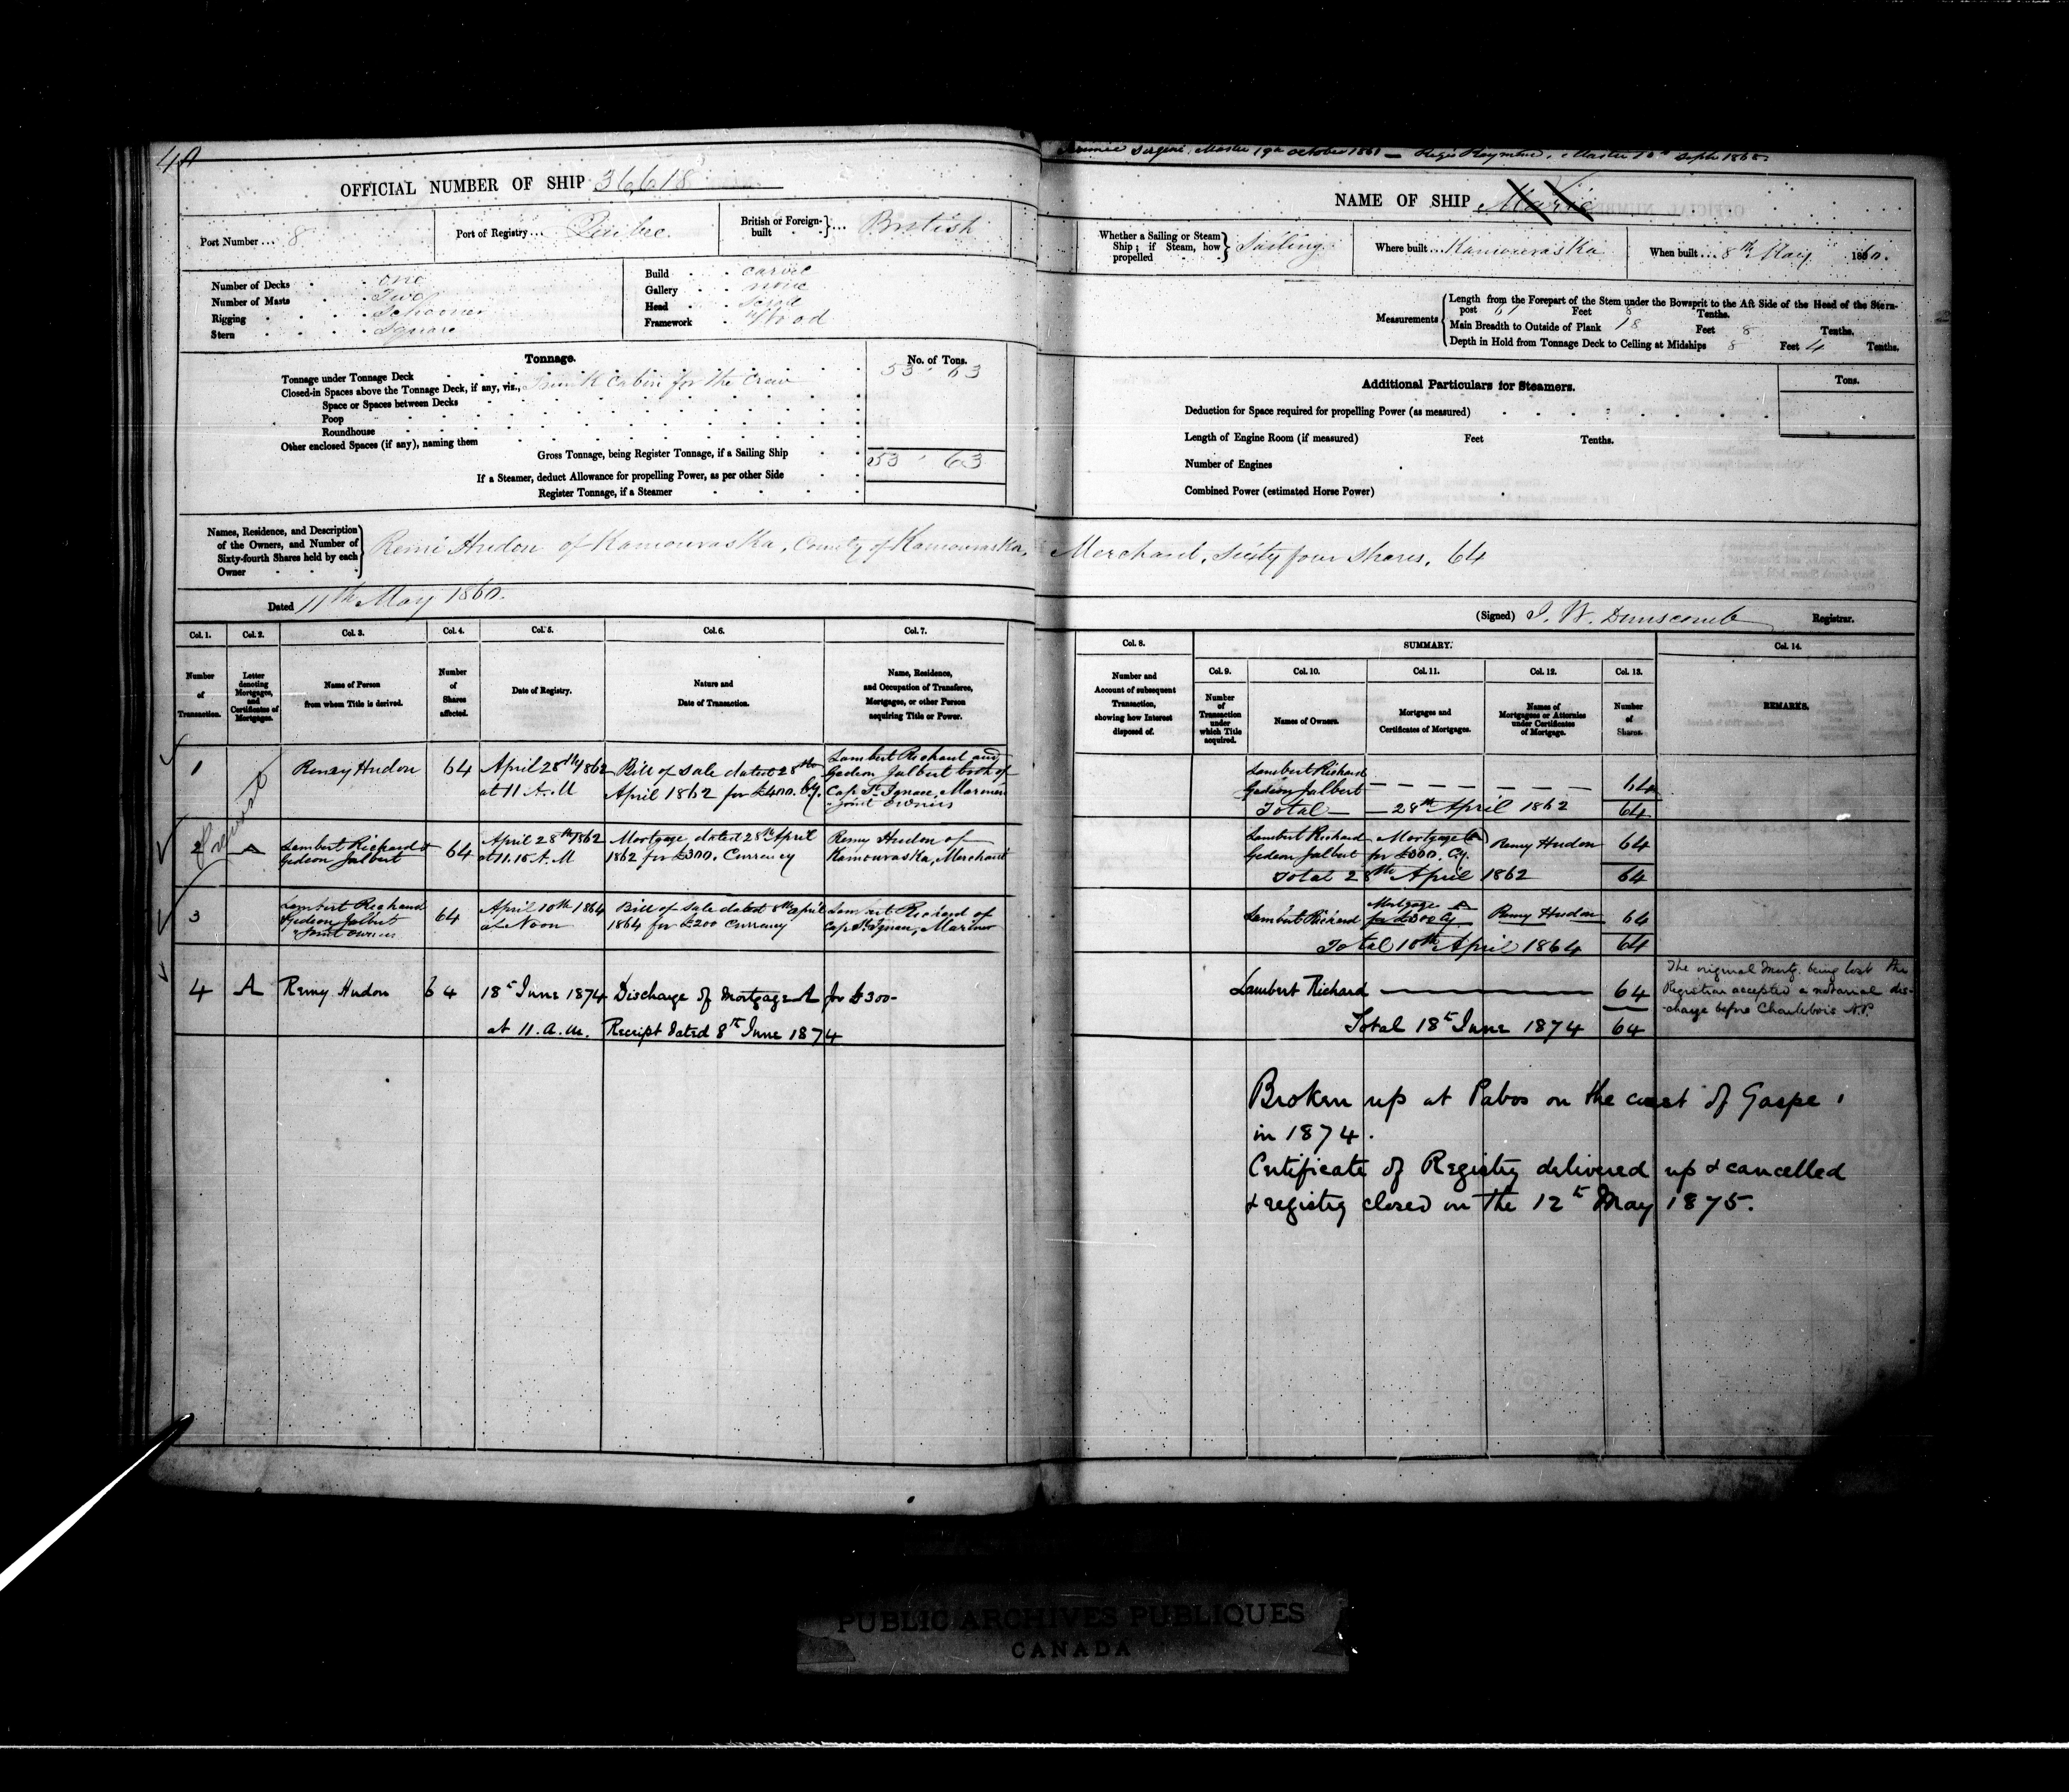 OFFICIAL NUMBER OF SHIP 36,618
Post Number ... 8
Port of Registry ... Quebec
British or Foreign-built ... British
Number of Decks one
Number of Masts Two
Rigging Schooner
Stern Square
Build carvel
Gallery none
Head Scroll
Framework Wood
Tonnage.
No. of Tons.
Tonnage under Tonnage Deck 53 . 63
Closed-in Spaces above the Tonnage Deck, if any, viz., Cabin for the Crew
Space or Spaces between Decks
Poop
Roundhouse
Other enclosed Spaces (if any), naming them
Gross Tonnage, being Register Tonnage, if a Sailing Ship 53 . 63
If a Steamer, deduct Allowance for propelling Power, as per other Side
Register Tonnage, if a Steamer
Names, Residence, and Description of the Owners, and Number of Sixty-fourth Shares held by each Owner
Remi Hudon of Kamouraska, County of Kamouraska,
Dated 11th May 1860.
Col. 1. Col. 2. Col. 3. Col. 4. Col. 5. Col. 6. Col. 7.
Number of Transaction.
Letter denoting Mortgages, and Certificates of Mortgages.
Name of Person from whom Title is derived.
Number of Shares affected.
Date of Registry.
Nature and Date of Transaction.
Name, Residence, and Occupation of Transferee, Mortgagee, or other Person acquiring Title or Power.
1 Remy Hudon 64 April 28th 1862 at 11 A.M Bill of Sale dated 28th April 1862 for £400. Cy. Lambert Richard and Gedeon Jalbert both of Cap St Ignace, Mariners Joint owners
2 A Lambert Richard & Gedeon Jalbert 64 April 28th 1862 at 11.15 A.M Mortgage dated 28th April 1862 for £300. Currency Remy Hudon of Kamouraska, Merchant
3 Lambert Richard Gedeon Jalbert Joint owners 64 April 10th 1864 at Noon Bill of Sale dated 8th April 1864 for £200 Currency Lambert Richard of Cap St Ignace, Mariner
4 A Remy Hudon 64 18th June 1874 at 11. a.m. Discharge of Mortgage A for £300- Receipt dated 8th June 1874
Master 19th October 1861 — Master Septr 1865
NAME OF SHIP Marie
Whether a Sailing or Steam Ship; if Steam, how propelled Sailing
Where built ... Kamouraska
When built ... 8th May 1860.
Measurements
Length from the Forepart of the Stem under the Bowsprit to the Aft Side of the Head of the Stern-
post 61 Feet 8 Tenths.
Main Breadth to Outside of Plank 18 Feet 8 Tenths.
Depth in Hold from Tonnage Deck to Ceiling at Midships 8 Feet 4 Tenths.
Additional Particulars for Steamers.
Tons.
Deduction for Space required for propelling Power (as measured)
Length of Engine Room (if measured) Feet Tenths.
Number of Engines
Combined Power (estimated Horse Power)
Merchant, Sixty four Shares. 64
(Signed) J. W. Dunscomb Registrar.
Col. 8.
Number and Account of subsequent Transaction, showing how Interest disposed of.
SUMMARY.
Col. 9. Col. 10. Col. 11. Col. 12. Col. 13. Col. 14.
Number of Transaction under which Title acquired.
Names of Owners.
Mortgages and Certificates of Mortgages.
Names of Mortgagees or Attornies under Certificates of Mortgage.
Number of Shares.
REMARKS.
Lambert Richard
Gedeon Jalbert 64
Total — 28th April 1862 64
Lambert Richard Mortgage A Remy Hudon 64
Gedeon Jalbert for £300. Cy.
Total 28th April 1862 64
Lambert Richard Mortgage A for £300 Cy Remy Hudon 64
Total 10th April 1864 64
Lambert Richard 64
Total 18th June 1874 64
The original Mortg. being lost the
Registrar accepted a notarial dis-
charge before Charlebois N.P.
Broken up at Pabos on the coast of Gaspe
in 1874.
Certificate of Registry delivered up & cancelled
& registry closed on the 12th May 1875.
PUBLIC ARCHIVES PUBLIQUES
CANADA